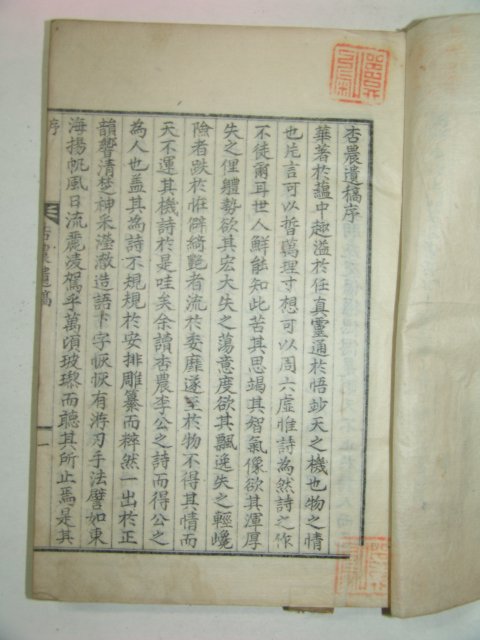 杏農遺稿序
華著於蘊中趣溢於任真靈通於悟玅天之機也物之情
也片言可以哲萬理寸想可以周六虛惟詩為然詩之作
不徒爾耳世人鮮能知此苦其思竭其智氣像欲其渾厚
失之俚軆勢欲其宏大失之蕩意度欲其飄逸失之輕巉
險者跌於怪僻綺艶者流於委靡遂至於物不得其情而
天不運其機詩於是哇矣余讀杏農李公之詩而得公之
為人也盖其為詩不規規於安排雕纂而粹然一出於正
韻響清楚神采瀅澈造語下字恢恢有游刃手法譬如東
海揚帆風日流麗凌駕乎萬頃玻瓈而聽其所止焉是其
杏農遺稿
序
一